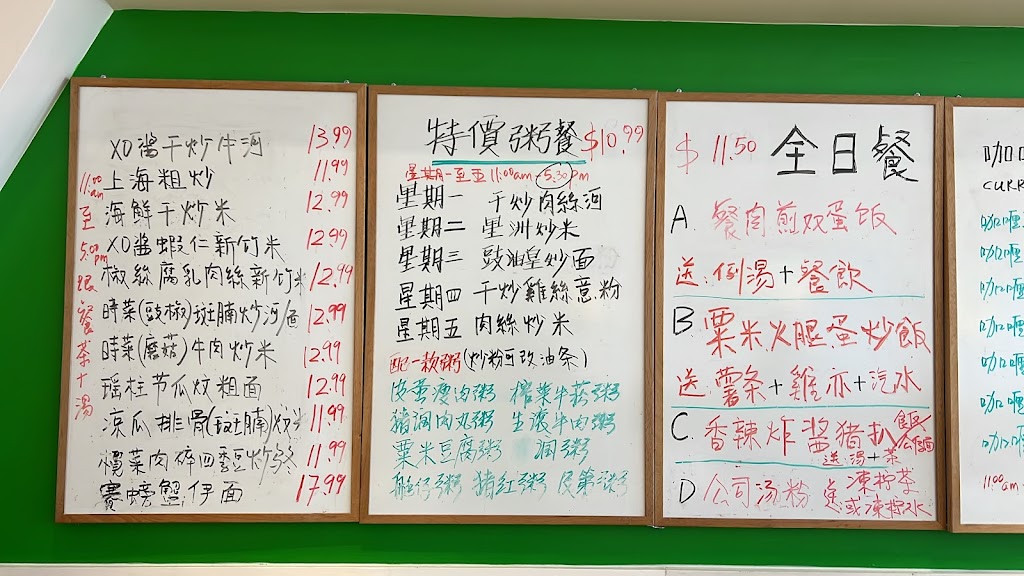 XO醬干炒牛河 13.99
上海粗炒 11.99
海鮮干炒米 12.99
XO醬蝦仁新竹米 12.99
椒絲腐乳肉絲新竹米 12.99
時菜(豉椒)斑腩炒河/面 12.99
時菜(蘑菇)牛肉炒米 12.99
瑶柱节瓜炆粗面 12.99
涼瓜排骨(斑腩)炆米 11.99
欖菜肉碎四季豆炒 11.99
賽螃蟹伊面 17.99
11:00am
至
5:00pm
跟
餐
茶
十
湯
特價粥餐 $10.99
星期一至五 11:00am-5:30pm
星期一 干炒肉絲河
星期二 星洲炒米
星期三 豉油皇炒面
星期四 干炒雞絲薏粉
星期五 肉絲炒米
配一款粥(炒粉可改油条)
皮蛋瘦肉粥 榨菜牛菘粥
豬润肉丸粥 生滾牛肉粥
粟米豆腐粥 润粥
艇仔粥 猪红粥 及第粥
$ 11.50 全日餐
A. 餐肉煎双蛋飯
送:例湯+餐飲
B. 粟米火腿蛋炒飯
送 薯条+雞亦+汽水
C. 香辣炸醬猪扒
送湯+茶
D 公司汤粉 送 凍拧茶
或凍拧水
咖
CURR
咖喱
咖喱
咖喱
咖喱
咖喱
咖喱
咖喱
11:00am